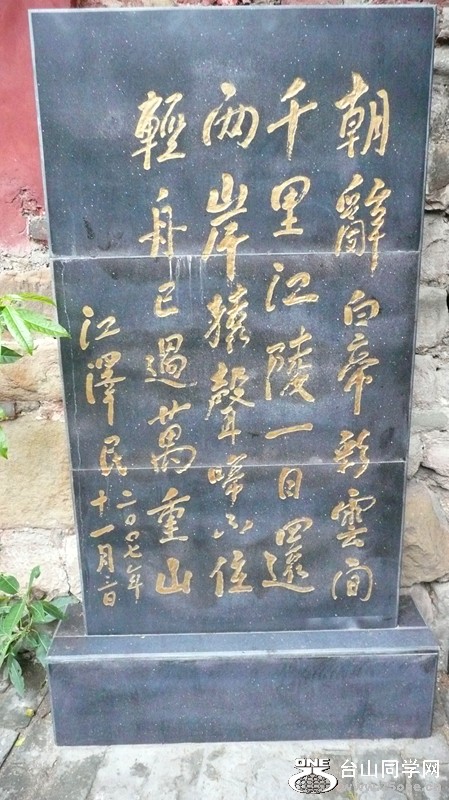 朝辭白帝彩雲间
千里江陵一日還
两岸猿聲啼不住
輕舟已過萬重山
江澤民
二〇〇七年
十一月二日
ONE
台山同学网